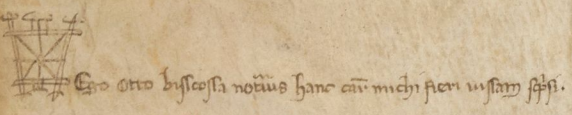 Ego Otto bisscossa notarius hanc car michi fieri uissam scpsi.